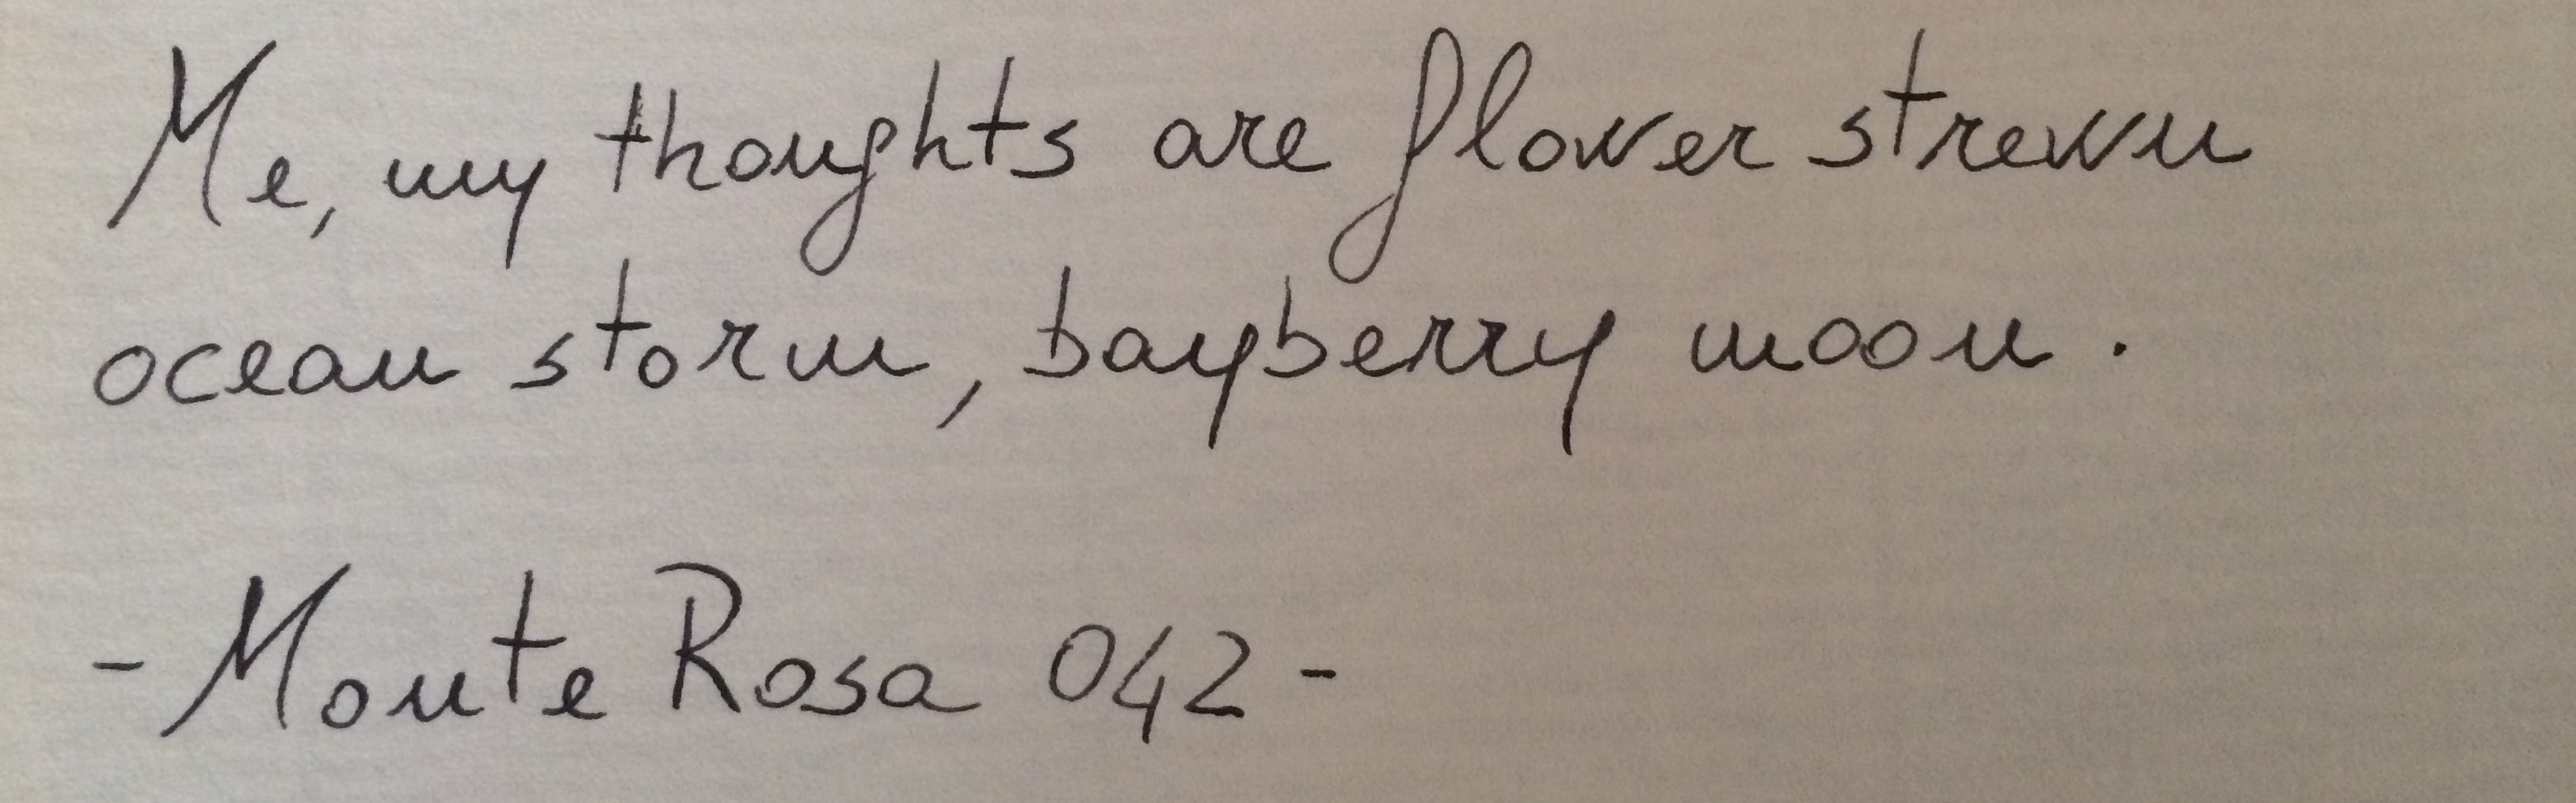 Me, my thoughts are flower strewn
ocean storm, bayberry moon.
- Monte Rosa 042 -